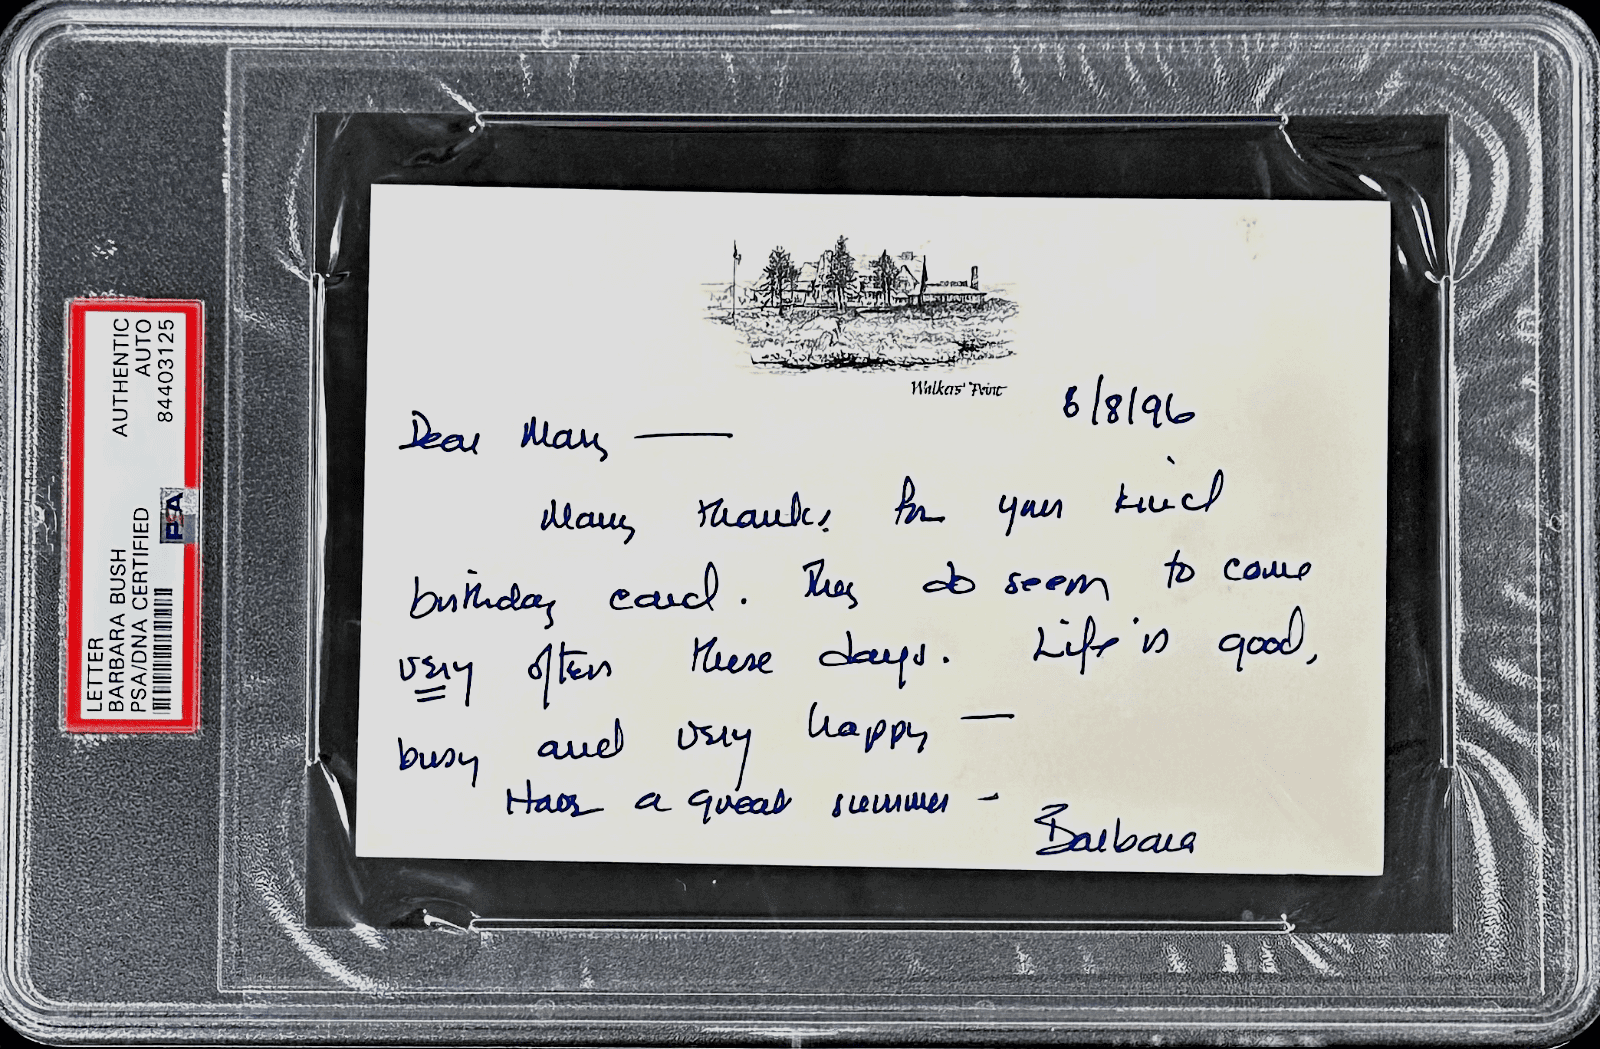 LETTER AUTHENTIC
BARBARA BUSH AUTO
PSA/DNA CERTIFIED 84403125
PSA
Walkers' Point
6/8/96
Dear Mary —
Many thanks for your kind
birthday card. They do seem to come
very often these days. Life is good,
busy and very happy —
Have a great summer -
Barbara